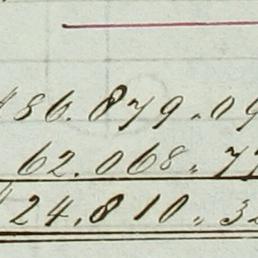 $86.879.09
62.068„77
$24.810„32